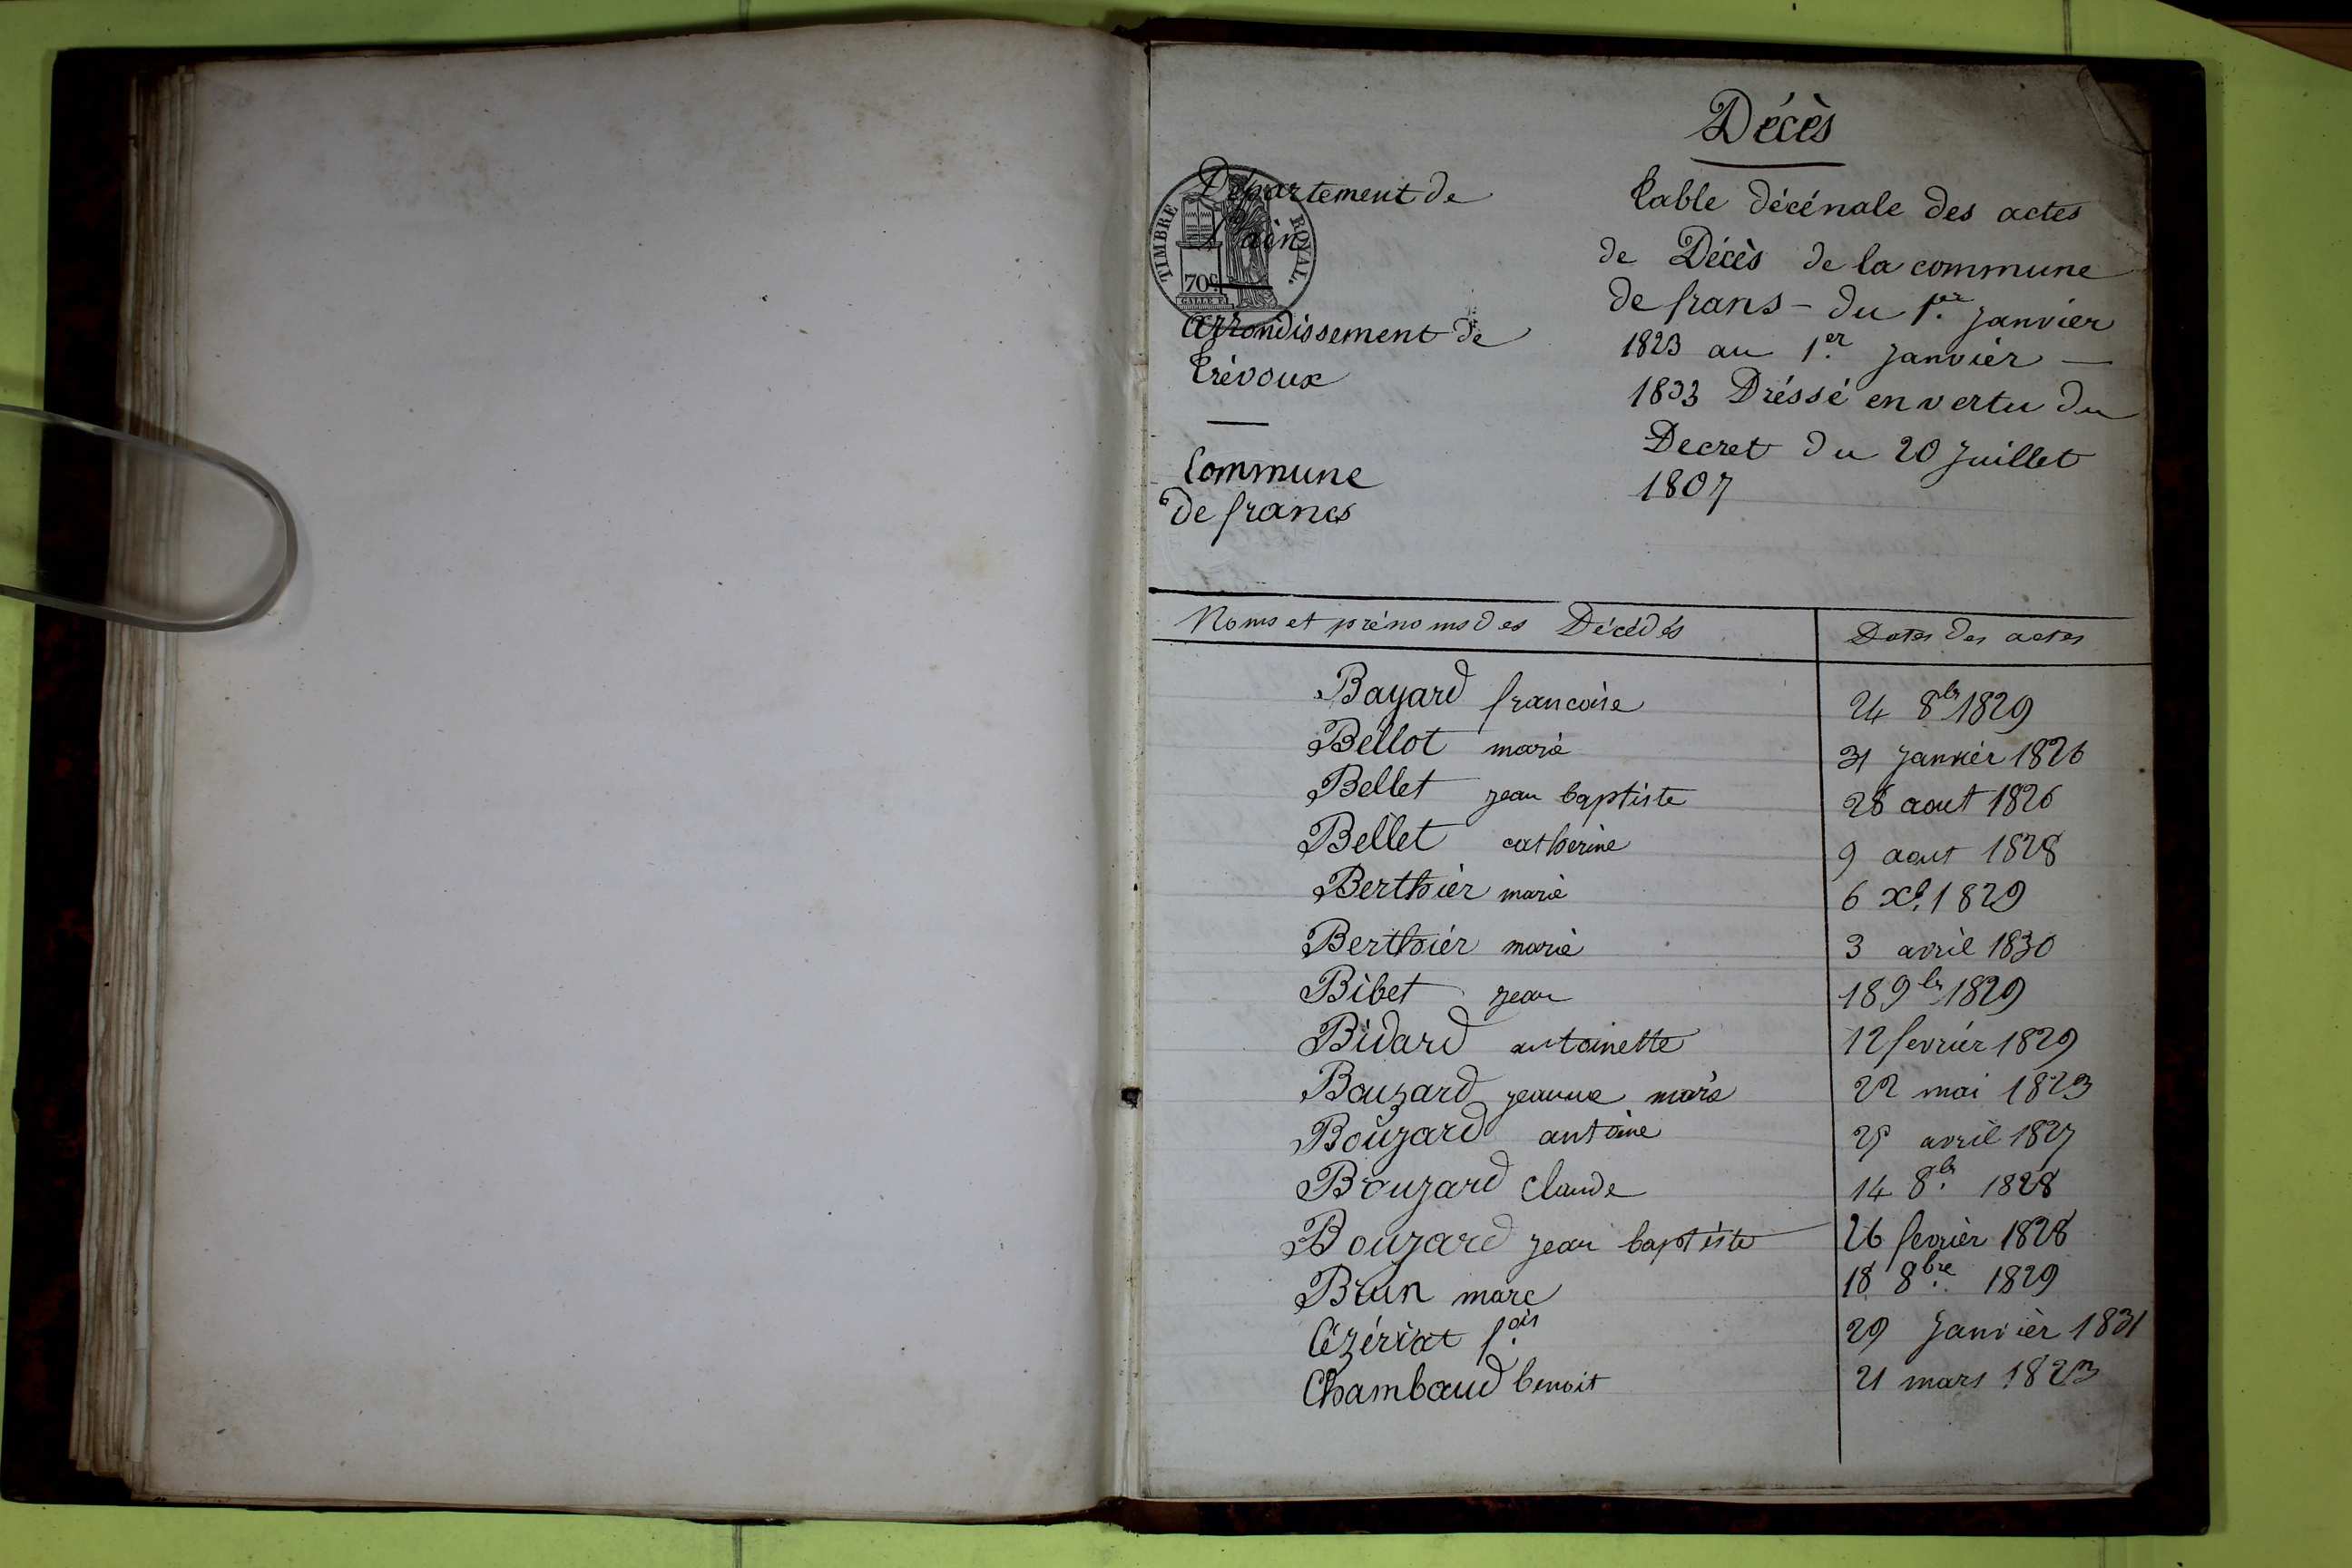 Décès
Département de
l'ain
TIMBRE ROYAL.
70c.
arrondissement de
Trévoux
Commune
de francs
Table décénale des actes
de Décès de la commune
de frans - du 1.er janvier
1823 au 1.er janvièr —
1833 Dréssé en vertu du
Decret du 20 juillet
1807
Noms et prénoms des Décédés Dates des actes
Bayard francoise 24 8br 1829
Bellot marie 31 janvièr 1826
Bellet jean baptiste 28 aout 1826
Bellet catherine 9 aout 1828
Berthièr marie 6 Xb. 1829
Berthiér marie 3 avril 1830
Bibet jean 18 9br 1829
Bidard antoinette 12 fevriér 1829
Bouzard jeanne marie 22 mai 1823
Bouzard antoine avril 1827
Bouzard Claude 14 8br. 1828
Bouzard jean baptiste 26 fevrièr 1828
Brun marc 18 8bre. 1829
Cézériat f.ois 29 janvièr 1831
Chambaud benoit 21 mars 1823